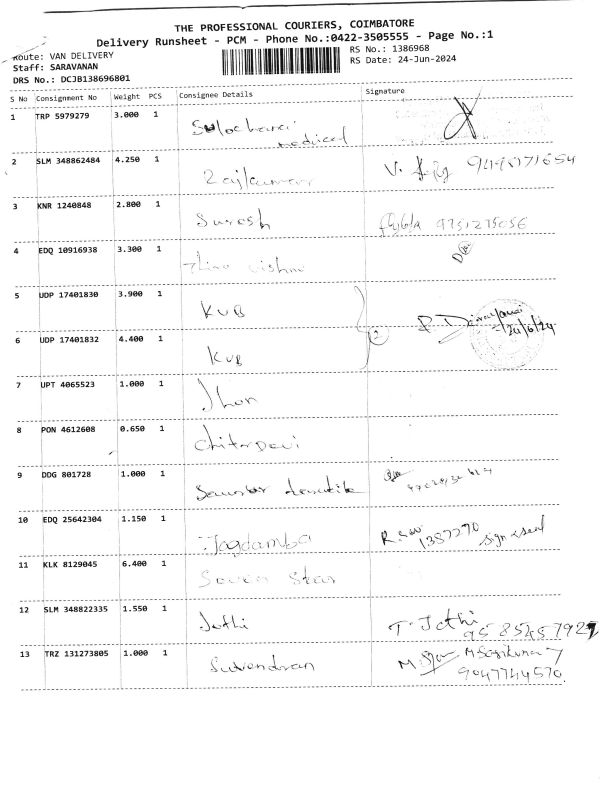 THE PROFESSIONAL COURIERS, COIMBATORE
Delivery Runsheet - PCM - Phone No.:0422-3505555 - Page No.:1
Route: VAN DELIVERY
RS No.: 1386968
Staff: SARAVANAN
RS Date: 24-Jun-2024
DRS No.: DCJB138696801
S No Consignment No Weight PCS Consignee Details Signature
1 TRP 5979279 3.000 1
medical
2 SLM 348862484 4.250 1
Rajkumar V.
3 KNR 1240848 2.800 1
Suresh 9751275056
4 EDQ 10916938 3.300 1
vishnu
5 UDP 17401830 3.900 1
KVB
24/6/24
6 UDP 17401832 4.400 1
KVB
2
7 UPT 4065523 1.000 1
Jhon
8 PON 4612608 0.650 1
Chitra Devi
9 DDG 801728 1.000 1
10 EDQ 25642304 1.150 1
Jagdamba 1387270 sign & seal
11 KLK 8129045 6.400 1
Seven Star
12 SLM 348822335 1.550 1
Jothi T. Jothi
13 TRZ 131273805 1.000 1
Surendran M. Sasikumar
9047744570